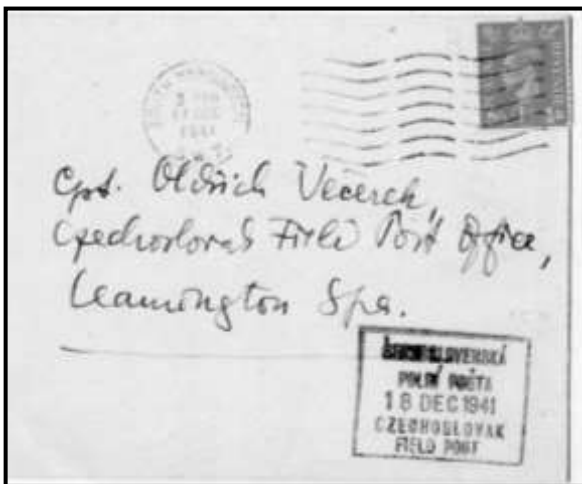 1941
Cpt. Oldřich Večerek,
Czechoslovak Field Post Office,
Leamington Spa.
ČESKOSLOVENSKÁ
POLNÍ POŠTA
18 DEC 1941
CZECHOSLOVAK
FIELD POST